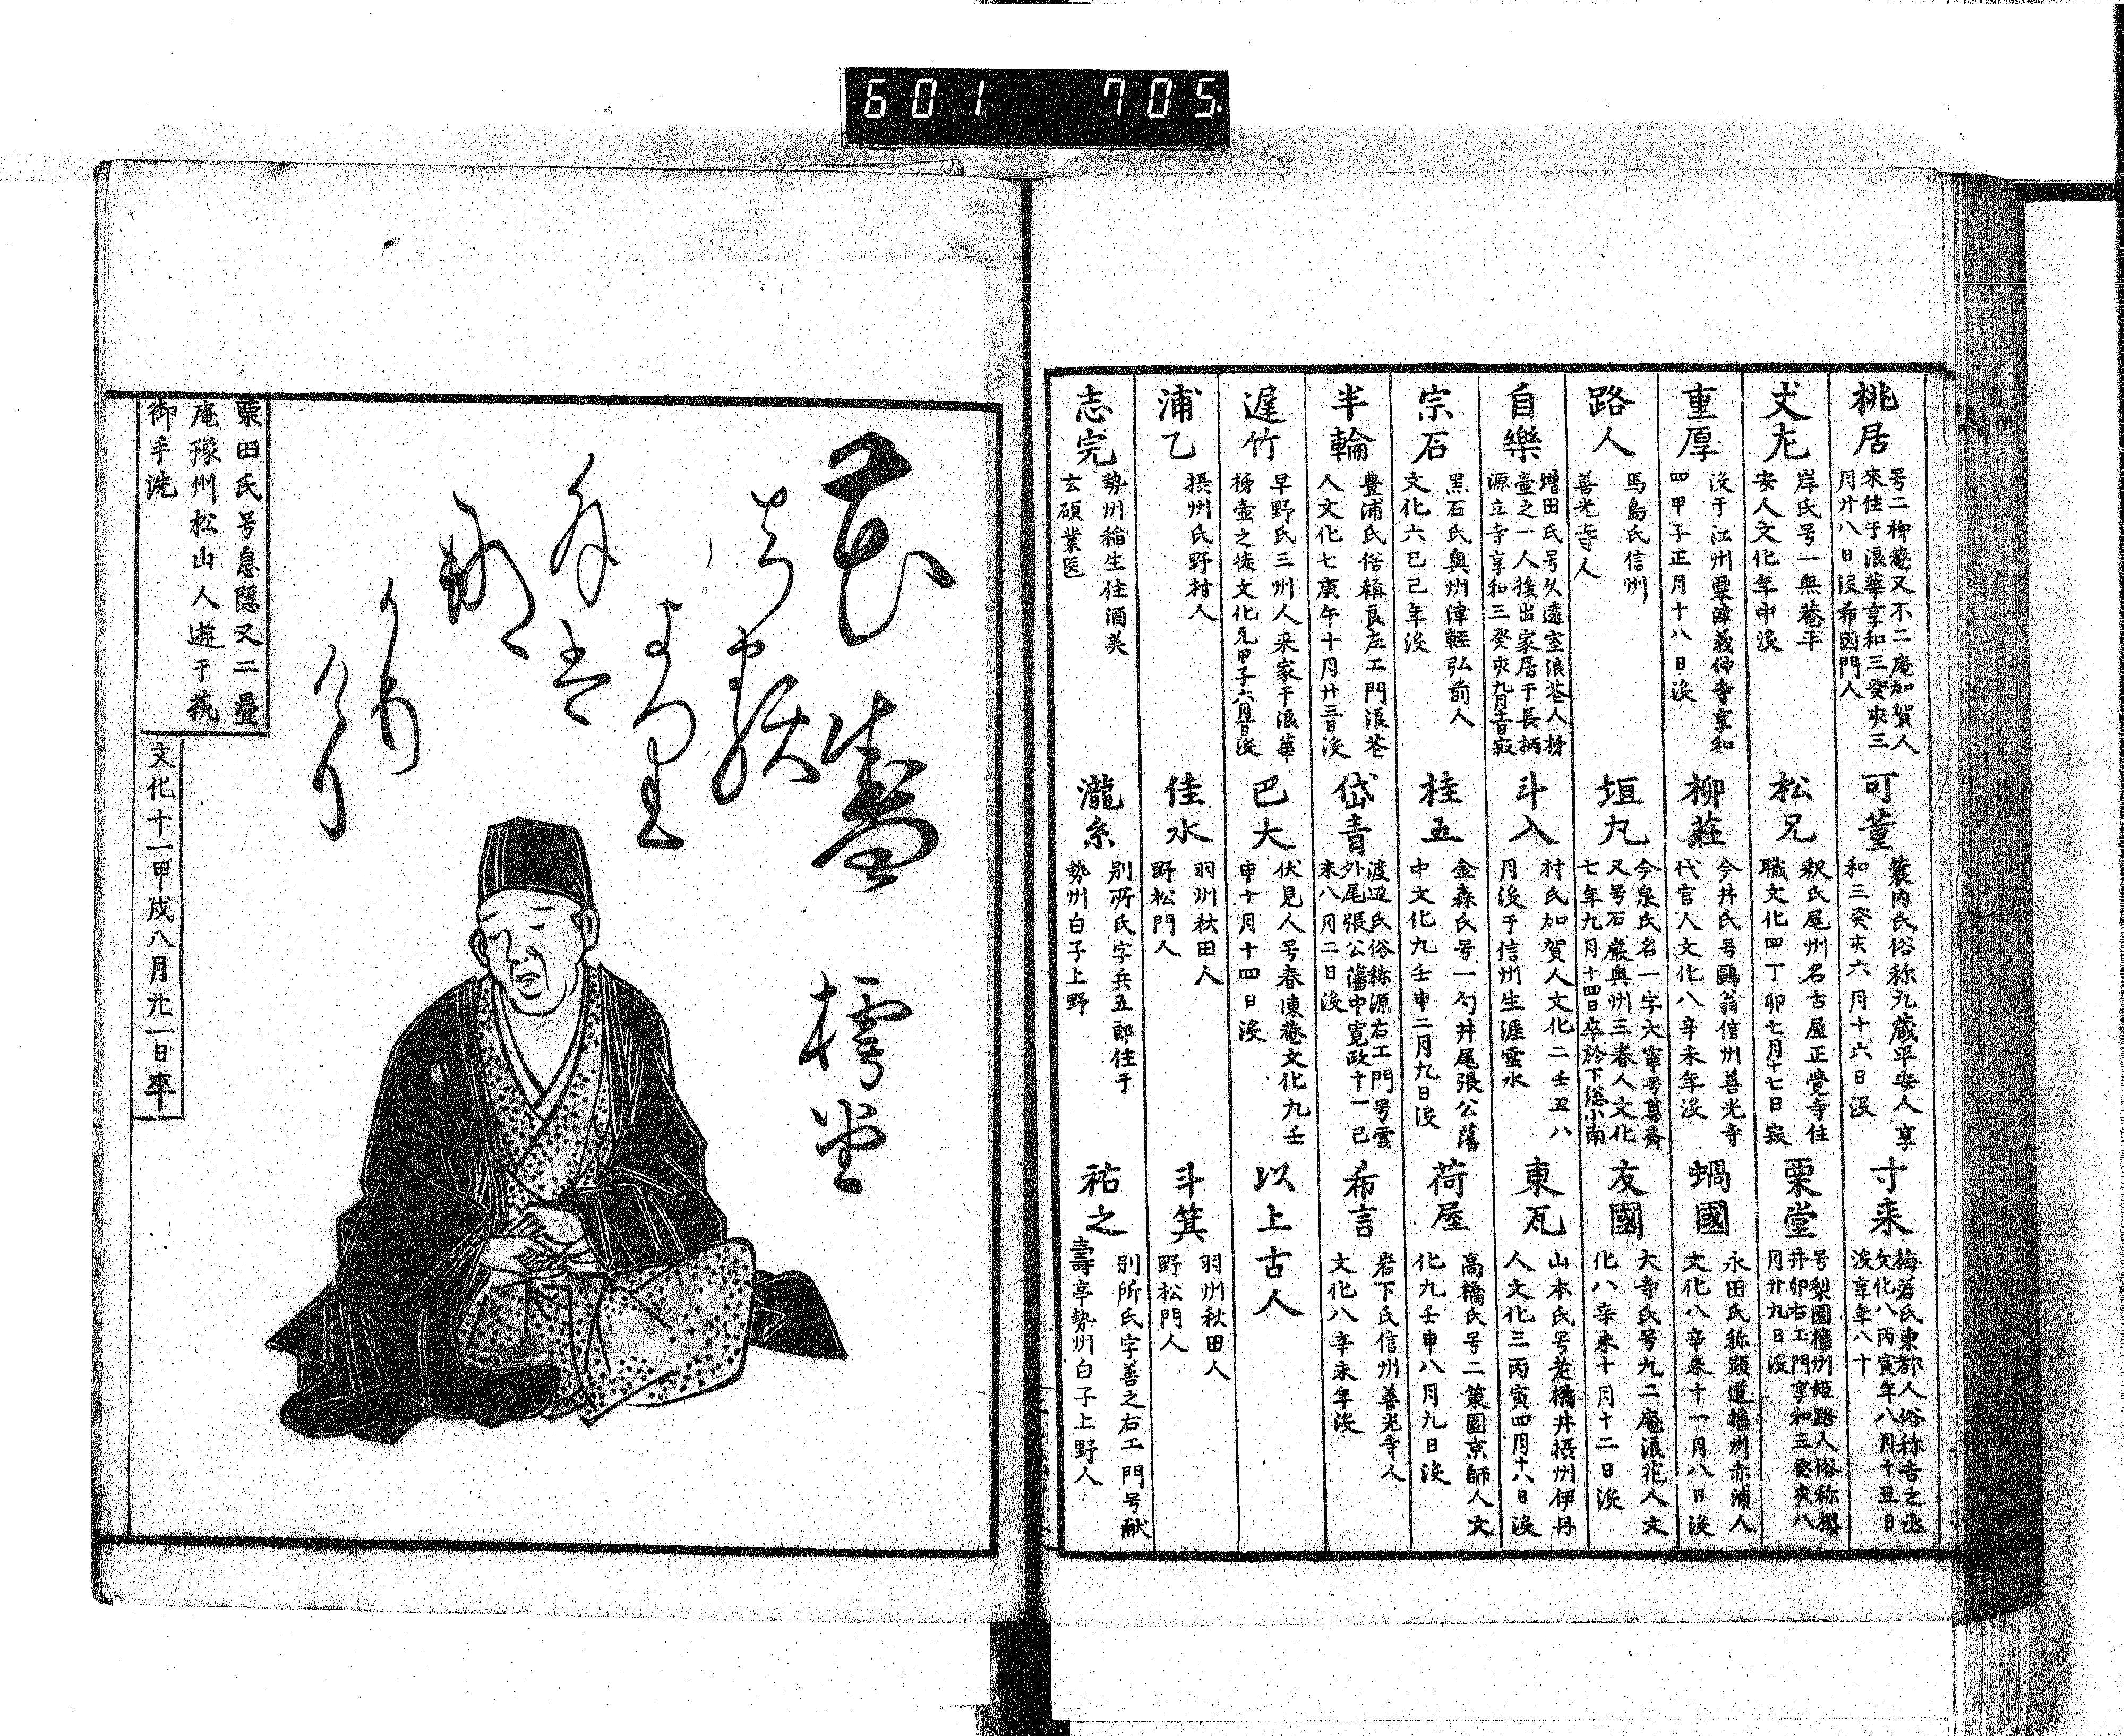 601 705
桃居
号二柳菴又不二庵加賀人
來住于浪華享和三癸亥三
月廿八日没希因門人
可董
簑内氏俗称九蔵平安人享
和三癸亥六月十六日没
寸来
梅若氏東都人俗称吉之丞
文化八丙寅年八月十五日
没享年八十
丈左
岸氏号一無菴平
安人文化年中没
松兄
釈氏尾州名古屋正覺寺住
職文化四丁卯七月十七日寂
栗堂
号梨園播州姫路人俗称櫻
井卯右エ門享和三癸亥八
月廿九日没
重厚
没于江州粟津義仲寺享和
四甲子正月十八日没
柳莊
今井氏号鷗翁信州善光寺
代官人文化八辛未年没
蝸國
永田氏称頭道播州赤浦人
文化八辛未十一月八日没
路人
馬島氏信州
善光寺人
垣丸
今泉氏名一字大寧号葛齋
又号石巖奥州三春人文化
七年九月十四日卒於下総小南
友國
大寺氏号九二庵浪花人文
化八辛未十月十二日没
自樂
増田氏号久遠室浪花人枌
壷之一人後出家居于長柄
源立寺享和三癸亥九月寂
斗入
村氏加賀人文化二壬丑八
月没于信州生涯雲水
東瓦
山本氏号老橘井摂州伊丹
人文化三丙寅四月十八日没
宗石
黒石氏奥州津軽弘前人
文化六己巳年没
桂五
金森氏号一勺井尾張公藩
中文化九壬申二月九日没
荷屋
高橋氏号二菓園京師人文
化九壬申八月九日没
半輪
豊浦氏俗稱良左エ門浪花
人文化七庚午十月廿三日没
岱青
渡辺氏俗称源右エ門号雲
外尾張公藩中寛政十一己
未八月二日没
希言
岩下氏信州善光寺人
文化八辛未年没
遅竹
早野氏三州人来家于浪華
枌壷之徒文化元甲子六月没
巴大
伏見人号春凍菴文化九壬
申十月十四日没
以上古人
浦乙
摂州氏野村人
佳水
羽州秋田人
野松門人
斗箕
羽州秋田人
野松門人
志完
勢州稲生住酒美
玄碩業医
瀧糸
別所氏字兵五郎住于
勢州白子上野
祐之
別所氏字善之右エ門号献
壽亭勢州白子上野人
樗堂
栗田氏号息隠又二疊
庵豫州松山人遊于藝
御手洗
文化十一甲戌八月廿一日卒